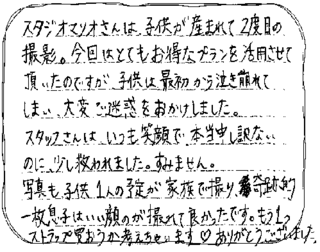 スタジオマリオさんは、子供が産まれて2度目の
撮影。今回はとてもお得なプランを活用させて
頂いたのですが 子供は最初から泣き崩れて
しまい、大変ご迷惑をおかけしました。
スタッフさんは、いつも笑顔で、本当申し訳ない
のに、少し救われました。すみません。
写真も子供1人の予定が家族で撮り、奇跡的
一枚息子はいい顔のが撮れて良かったです。もう1つ
ストラップ買おうか考えちゃいます♡ ありがとうございました